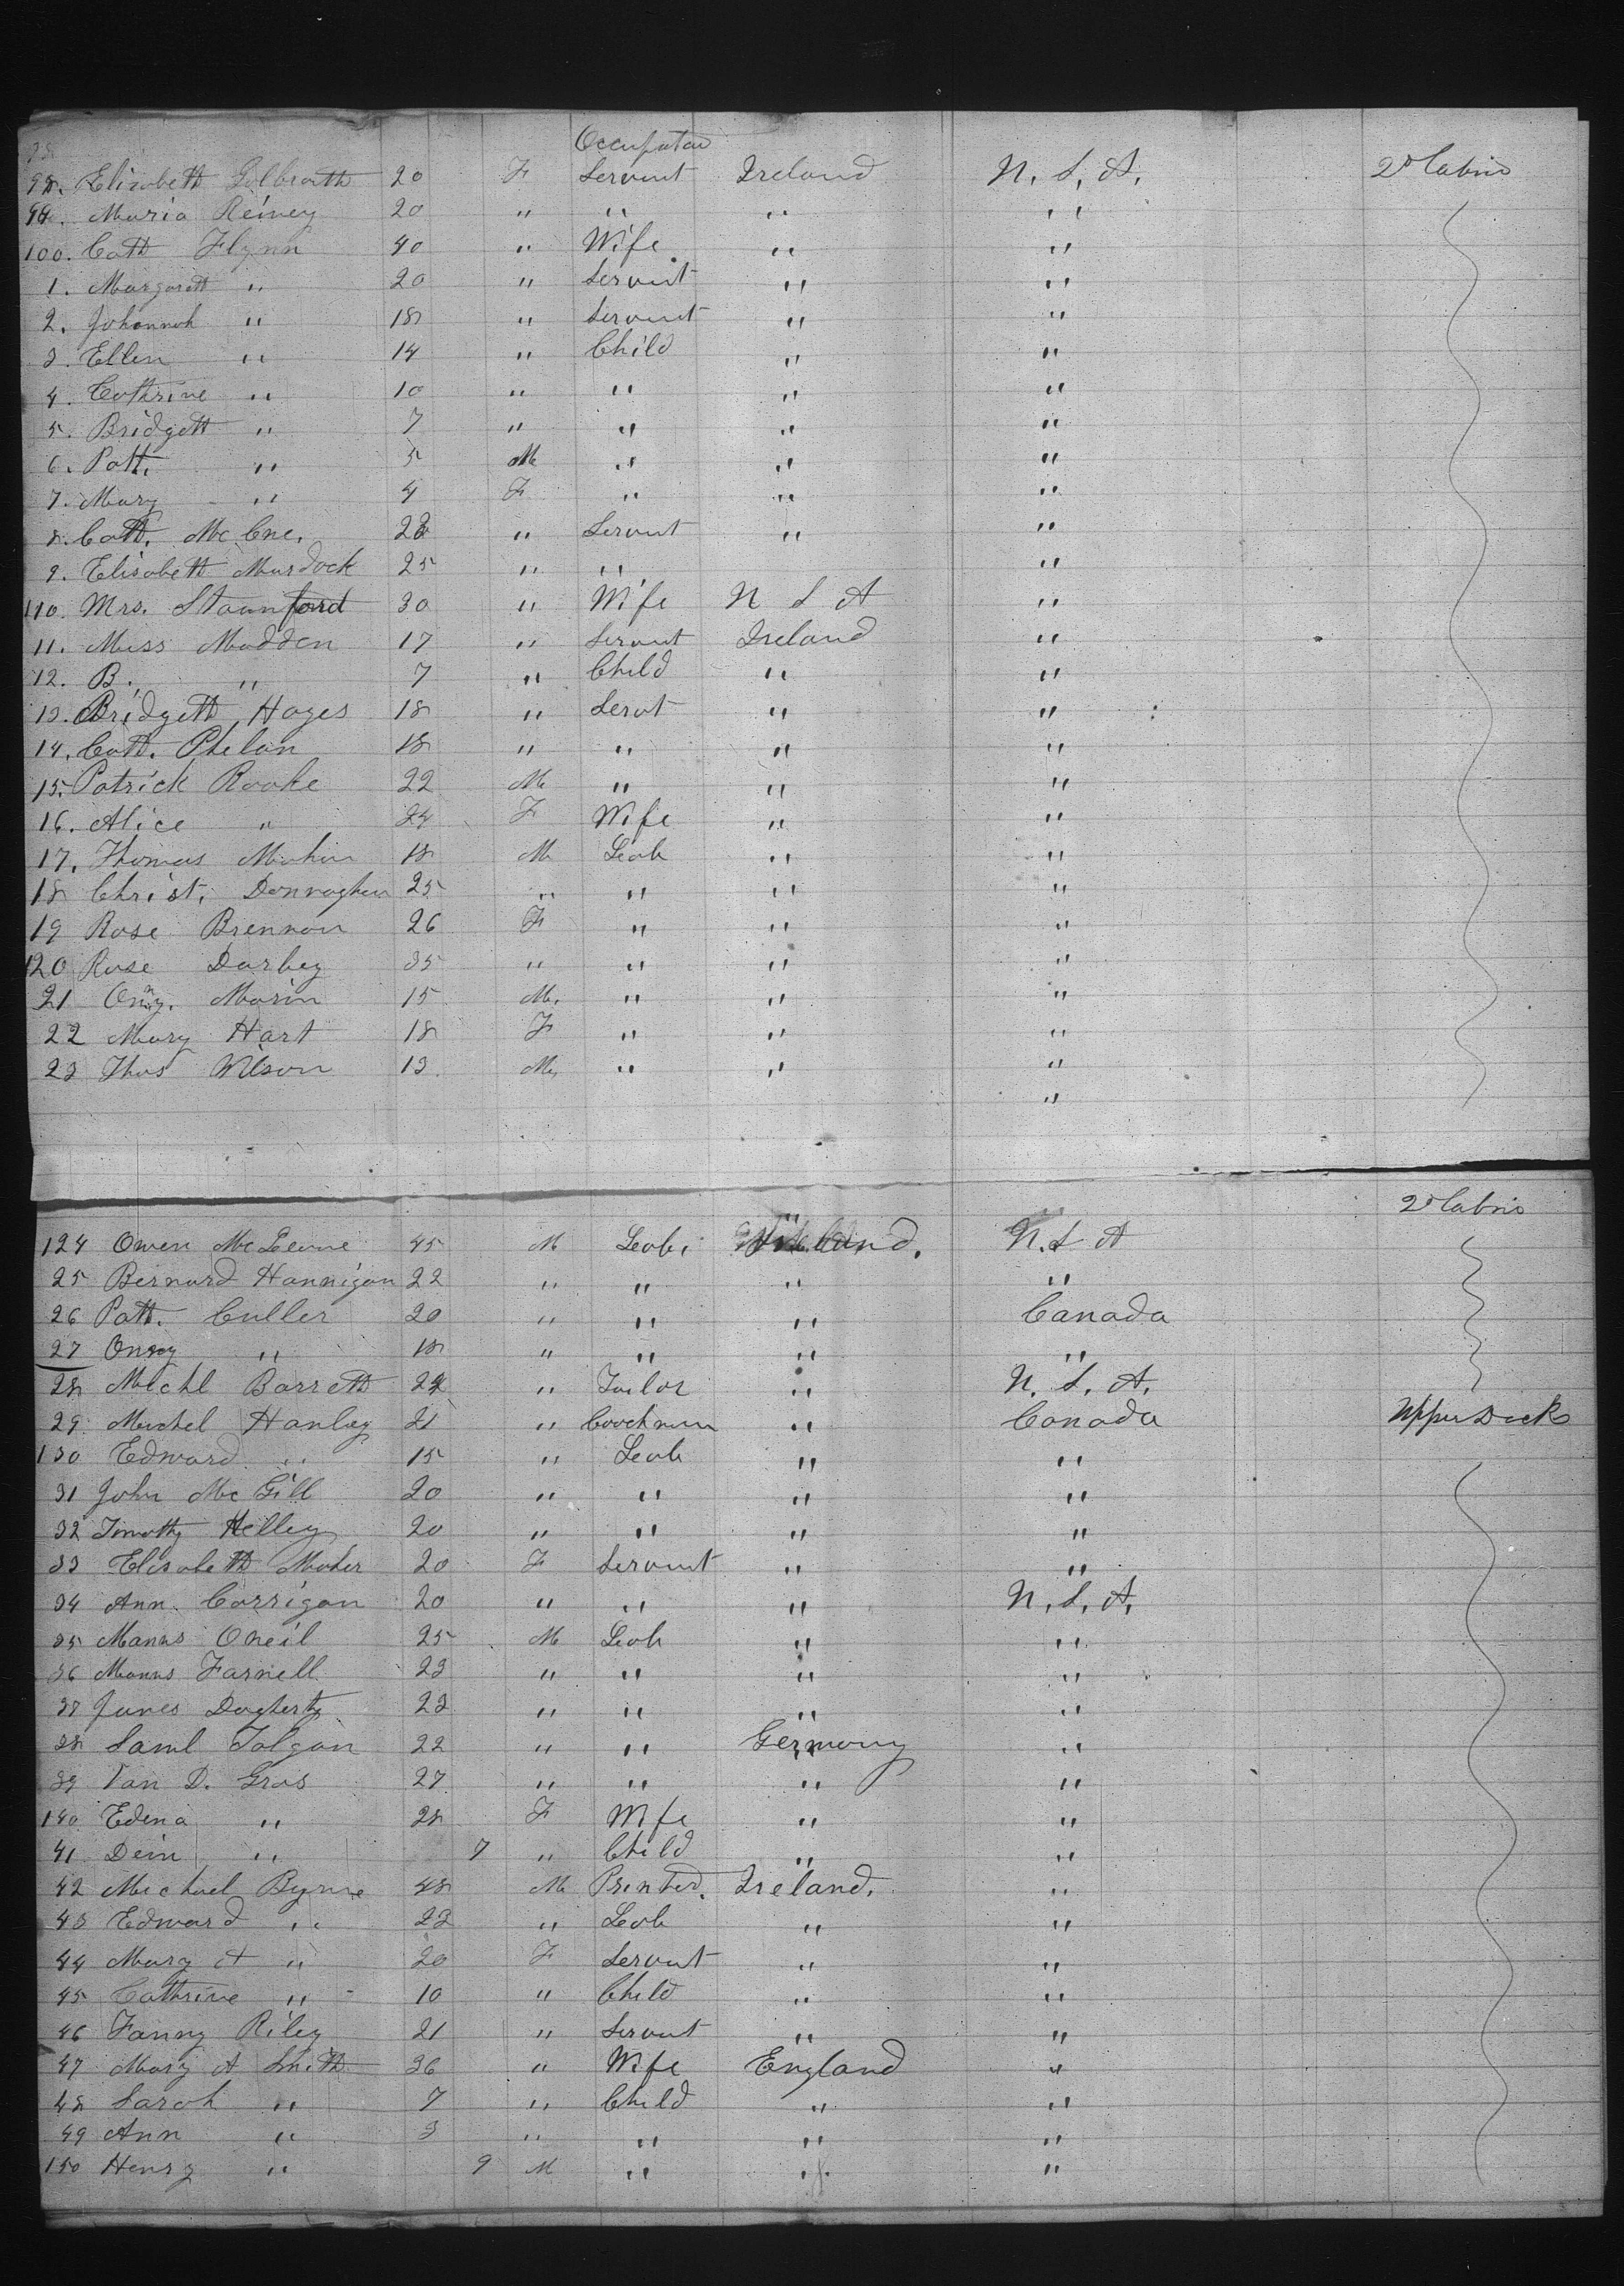 Occupation
98. Elisabeth Gilbreath 20 F Servant Ireland U.S.A. 2d Cabin
99. Maria Reiney 20 " " " "
100. Cath Flynn 40 " Wife " "
1. Margarett " 20 " Servant " "
2. Johannah " 18 " Servant " "
3. Ellen " 14 " Child " "
4. Cathrine " 10 " " " "
5. Bridgett " 7 " " " "
6. Patt. " 5 M " " "
7. Mary " 4 F " " "
8. Cath. Mc Cue. " Servant " "
9. Elisabeth Murdock 25 " " " "
110. Mrs. Stannford 30 " Wife U S A "
11. Miss Madden 17 " Servant Ireland "
12. B. " 7 " Child " "
13. Bridgett Hayes 18 " Servt " "
14. Cath. Phelan 18 " " " "
15. Patrick Roake 22 M " " "
16. Alice " 24 F Wife " "
17. Thomas Mahin 18 M Leab " "
18 Christ. Donnaghen 25 " " " "
19 Rose Brennon 26 F " " "
120 Rose Darbey 35 " " " "
21 Marin 15 M. " " "
22 Mary Hart 18 F " " "
23 Thos Wilson 13 M, " " "
"
2d Cabin
124 Owen Mc Leane 45 M Leab, Ireland. U.S A
25 Bernard Hannigan 22 " " " "
26 Patt. Culler 20 " " " Canada
27 " 18 " " " "
28 Michl Barrett " Tailor " U. S. A.
29 Michel Hanley 21 " Coachman " Canada Upper Deck
130 Edward " 15 " Leab " "
31 John Mc Gill 20 " " " "
32 Timothy Kelley 20 " " " "
33 Elisabeth Maher 20 F Servant " "
34 Ann Corrigan 20 " " " U. S. A.
35 Manus Oneil 25 M Leab " "
36 Manus Farnell 23 " " " "
37 James Dogherty 23 " " " "
38 Saml Tolgan 22 " " Germany "
39 Van D. Gras 27 " " " "
140 Edena " 28 F Wife " "
41 Dein " 7 " Child " "
42 Michael Byrne 48 M Printer. Ireland. "
43 Edward " 23 " Leab " "
44 Mary A " 20 F Servant " "
45 Cathrine " 10 " Child " "
46 Fanny Riley 21 " Servant " "
47 Mary A Smith 36 " Wife England "
48 Sarah " 7 " Child " "
49 Ann " 3 " " " "
150 Henry " 9 M " " "